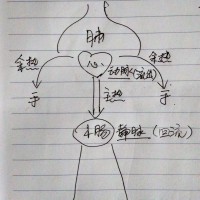 肺
余热
余热
心
动脉(流出)
手
手
主热
小肠
静脉(回流)